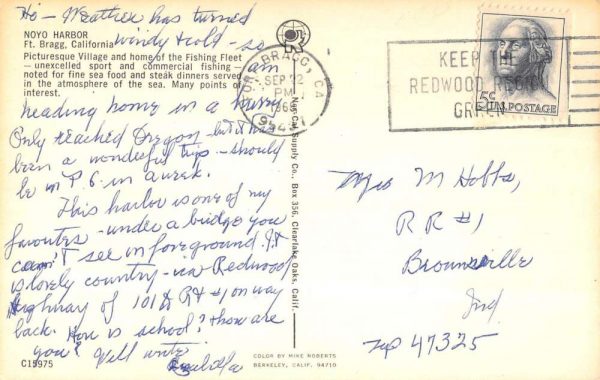 Hi - Weather has turned
windy & cold - so
am
heading home in a hurry
Only reached Oregon - but it has
been a wonderful trip - should
be in P.S. in a week.
This harbor is one of my
favorites - under a bridge you
can't see in foreground. It
is lovely country - via Redwood
Highway of 101 & Rt #1 on way
back. How is school? & how are
you? Will write
NOYO HARBOR
Ft. Bragg, California
Picturesque Village and home of the Fishing Fleet
— unexcelled sport and commercial fishing —
noted for fine sea food and steak dinners served
in the atmosphere of the sea. Many points of
interest.
C15975
Nor-Cal Supply Co., Box 356, Clearlake Oaks, Calif.
COLOR BY MIKE ROBERTS
BERKELEY, CALIF. 94710
FORT BRAGG, CA
SEP 22
PM
KEEP THE
REDWOOD REGION
GREEN
5c
U.S. POSTAGE
M Hobbs,
RR #1
Brownsville
Ind
Zip 47325